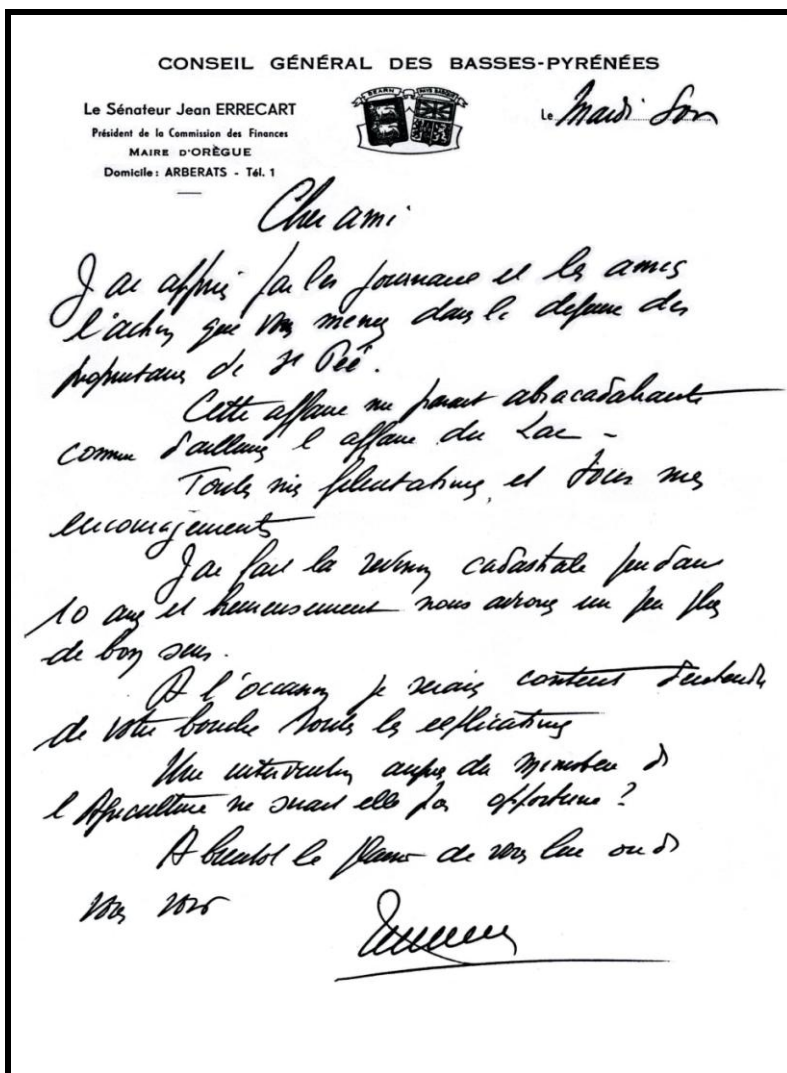 CONSEIL GÉNÉRAL DES BASSES-PYRÉNÉES
Le Sénateur Jean ERRECART
Président de la Commission des Finances
MAIRE D'ORÈGUE
Domicile : ARBERATS - Tél. 1
BEARN PAYS BASQUE
Le Mardi Soir
Cher ami
J'ai appris par les journaux et les amis
l'action que vous menez dans la défense des
propriétaires de St Pée.
Cette affaire me parait abracadabrante
comme d'ailleurs l'affaire du Lac -
Toutes mes félicitations et tous mes
encouragements
J'ai fait la révision cadastrale pendant
10 ans et heureusement nous avions un peu plus
de bon sens.
A l'occasion je serais content d'entendre
de votre bouche toutes les explications
Une intervention auprès du Ministère de
l'Agriculture ne serait elle pas opportune ?
A bientôt le plaisir de vous lire ou de
vous voir